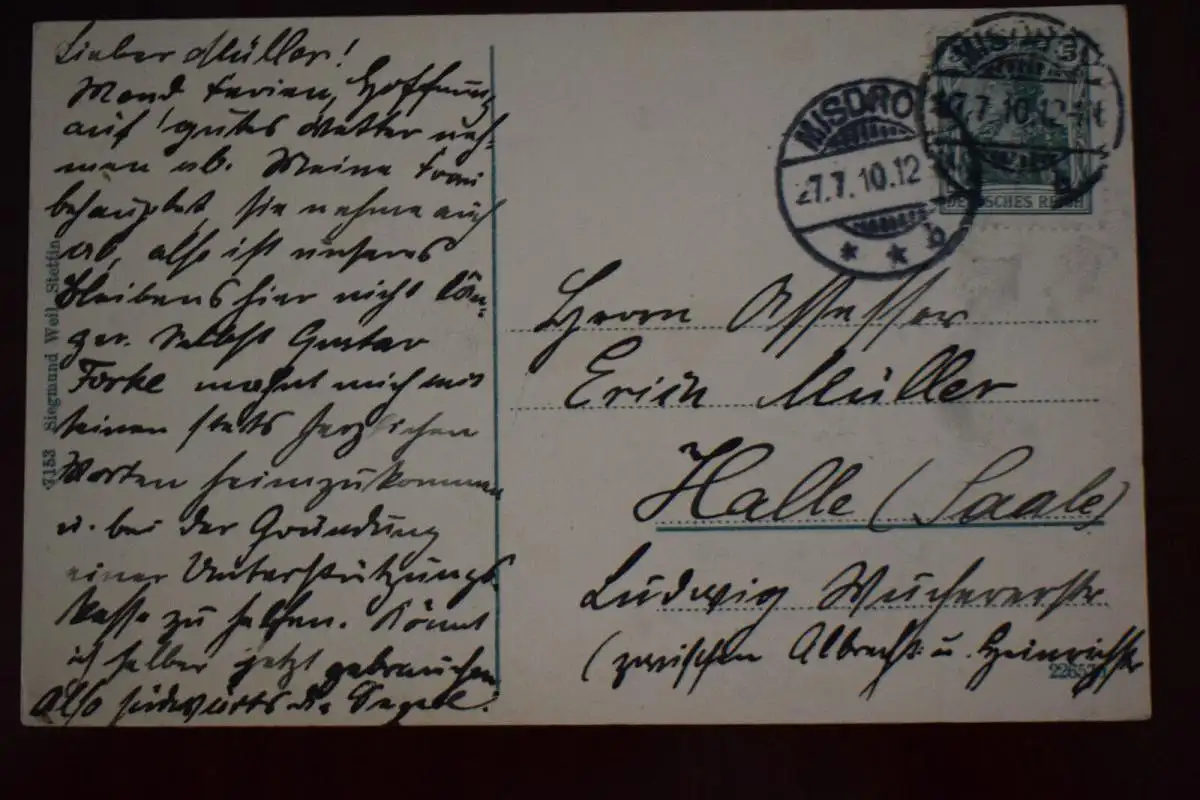 Lieber Müller!
Mond, Ferien, Hoffnung
auf gutes Wetter neh-
men ab. Meine Frau
behauptet, sie nehme auch
ab, also ist unseres
Bleibens hier nicht län-
ger. Selbst Gustav
Forke mahnt mich mit
seinen stets herzlichen
Worten heimzukommen
u. bei der Gründung
einer Unterstützungs-
kasse zu helfen. Könnt
ich selber jetzt gebrauchen.
Also südwärts die Segel.
7153 Siegmund Weil, Stettin
MISDROY
27.7.10.12
* * b
MISDROY
27.7.10.12-1N
b
5
DEUTSCHES REICH
Herrn Assessor
Erich Müller
Halle (Saale)
Ludwig Wuchererstr
(zwischen Albrecht- u. Heinrichstr